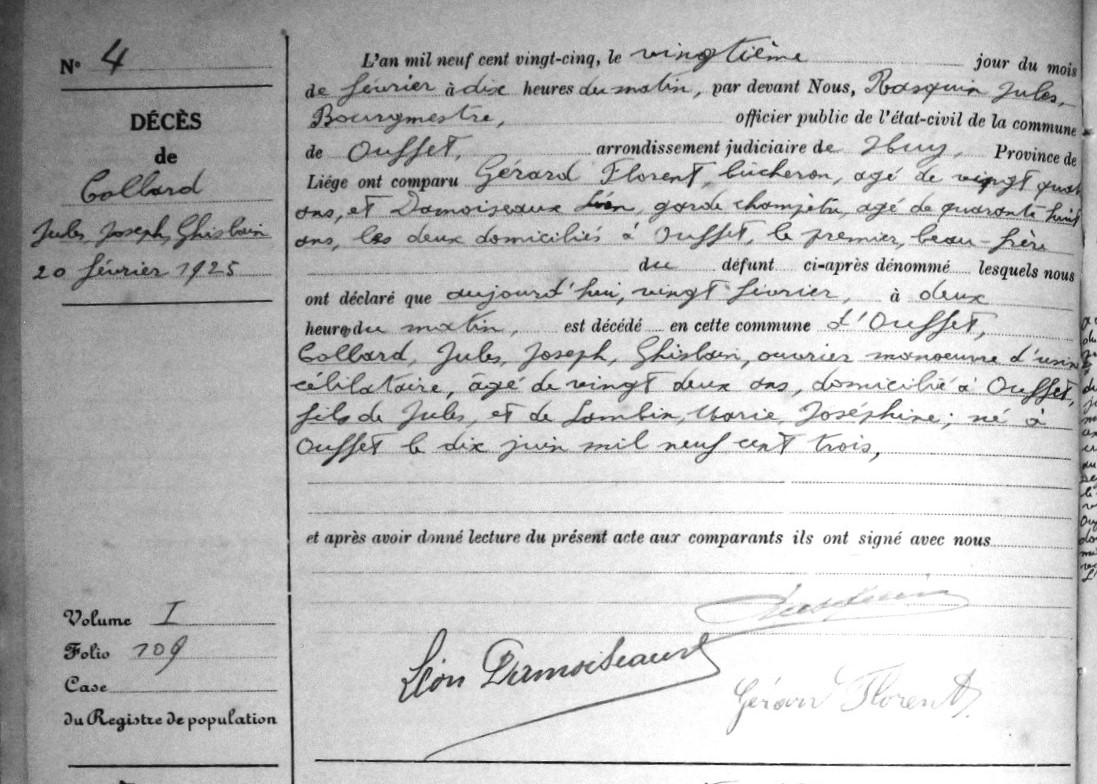 N° 4
DÉCÈS
de
Collard
Jules, Joseph, Ghislain
20 février 1925
Volume I
Folio 109
Case
du Registre de population
L'an mil neuf cent vingt-cinq, le vingtième jour du mois
de février à dix heures du matin, par devant Nous, Rasquin Jules,
Bourgmestre, officier public de l'état-civil de la commune
de Ouffet, arrondissement judiciaire de Huy, Province de
Liége ont comparu Gérard Florent, bûcheron, agé de vingt quat
ans, et Damoiseaux Léon, garde champêtre, agé de quarante huit
ans, les deux domiciliés à Ouffet, le premier, beau-frère
du défunt ci-après dénommé lesquels nous
ont déclaré que aujourd'hui, vingt février, à deux
heures du matin, est décédé en cette commune d'Ouffet,
Collard, Jules, Joseph, Ghislain, ouvrier manoeuvre d'usine
célibataire, âgé de vingt deux ans, domicilié à Ouffet,
fils de Jules, et de Lambin, Marie, Joséphine; né à
Ouffet le dix juin mil neuf cent trois,
et après avoir donné lecture du présent acte aux comparants ils ont signé avec nous
Rasquin
Léon Damoiseaux
Gérard Florent